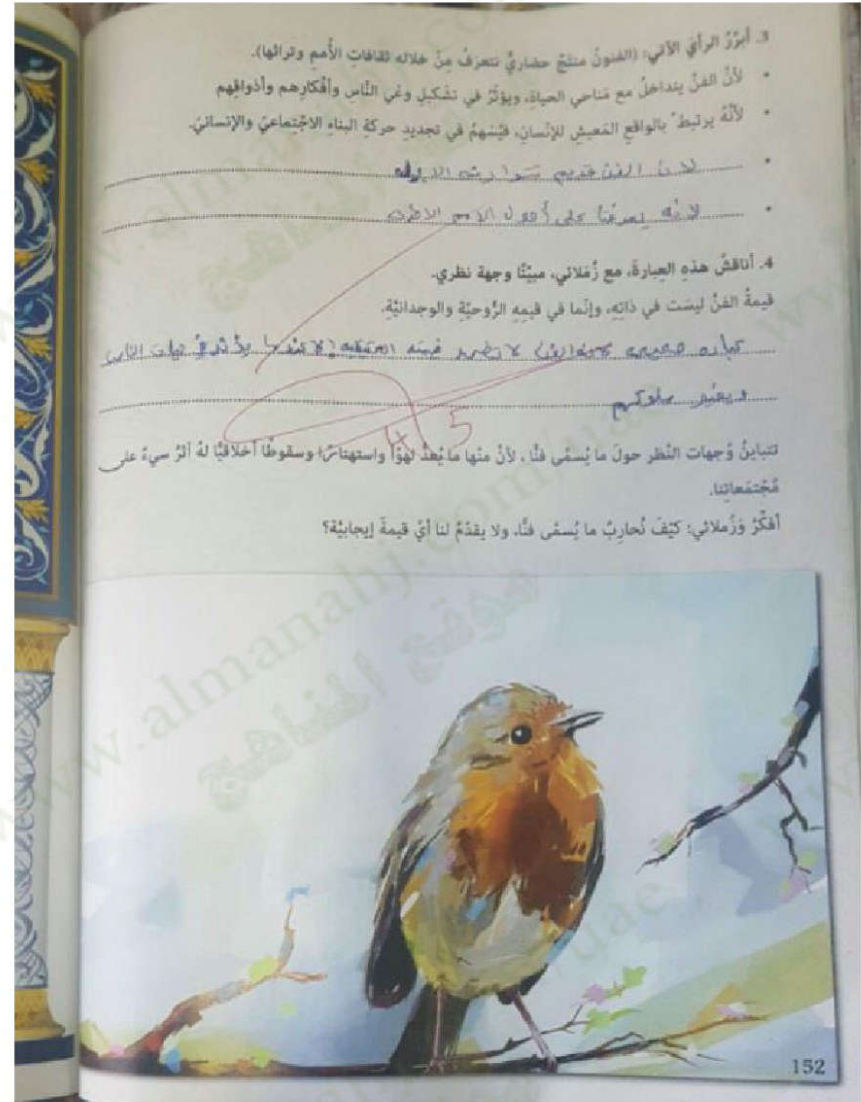 3. أبرّرُ الرأيَ الآتي: (الفنونُ منتَجٌ حضاريٌّ نتعرفُ مِنْ خلاله ثقافاتِ الأُممِ وتراثها).
• لأنَّ الفنَّ يتداخلُ مع مَناحي الحياةِ، ويؤثّرُ في تشكيلِ وعْيِ النَّاسِ وأفْكارِهم وأذواقِهم
• لأنّهُ يرتبطُ بالواقعِ المَعيشِ للإنسانِ، فيُسْهِمُ في تجديدِ حركةِ البناءِ الاجْتماعيّ والإنسانيّ.
• لان الفن قديم
• لانه يعرفنا على الامم الاخرى
4. أناقشُ هذهِ العِبارةَ، مع زُمَلائي، مبيّنًا وجهة نظري.
قيمةُ الفنِّ ليسَت في ذاتِهِ، وإنّما في قيمِهِ الرُّوحيَّةِ والوجدانيَّةِ.
صحيحه
ويغير سلوكهم
4/5
تتباينُ وُجهات النَّظر حولَ ما يُسمَّى فنًّا، لأنّ منْها ما يُعدُّ لهْوًا واستهتارًا وسقوطًا أخلاقيًّا لهُ أثرٌ سيءٌ على
مُجْتمَعاتِنا.
أفكّرُ وَزُملائي: كيْفَ نُحاربُ ما يُسمَّى فنًّا، ولا يقدّمُ لنا أيَّ قيمةٍ إيجابيَّة؟
152
www.almanahj.com/uae
موقع المناهج